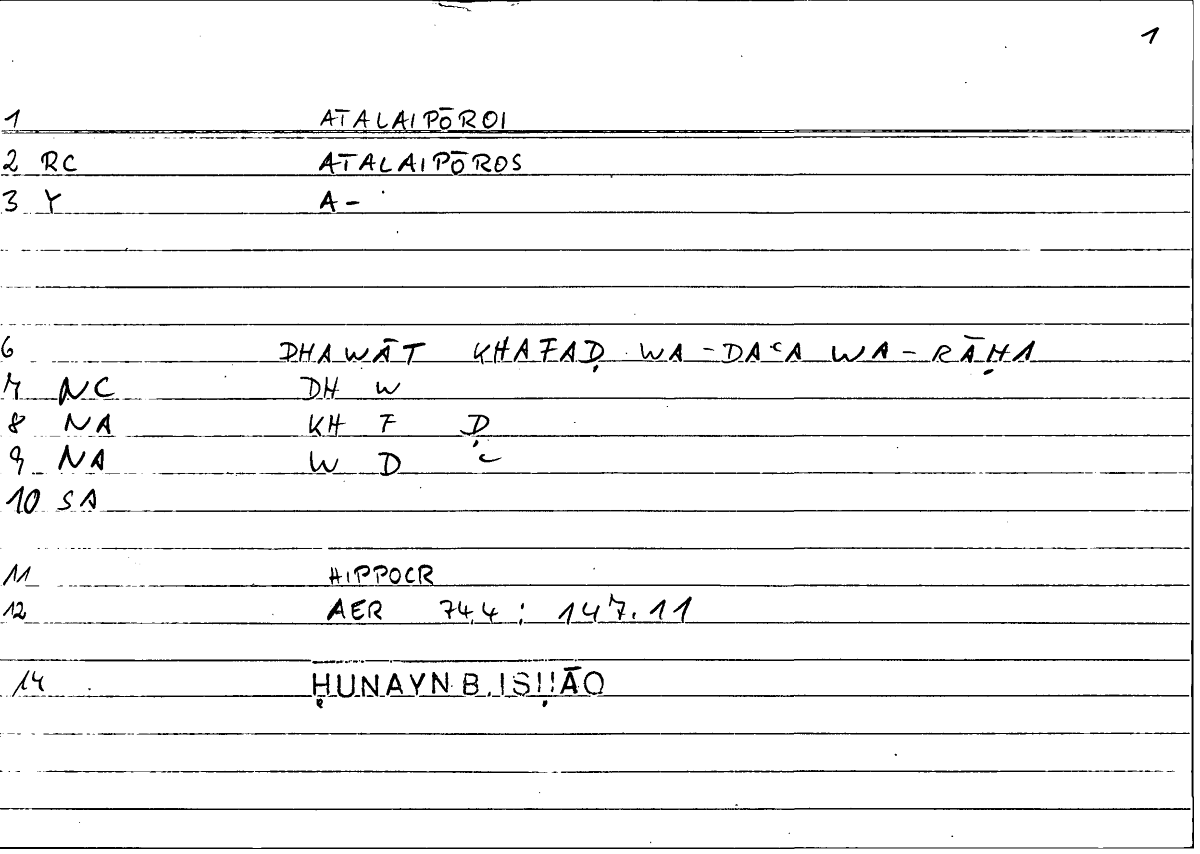 1
1 ATALAIPŌROI
2 RC ATALAIPŌROS
3 Y A-
6 DHAWĀT KHAFAḌ WA-DAʿA WA-RĀḤA
7 NC DH W
8 NA KH F Ḍ
9 NA W D ʿ
10 SA
11 HIPPOCR
12 AER 74,4 : 147.11
14 ḤUNAYN B. ISḤĀQ